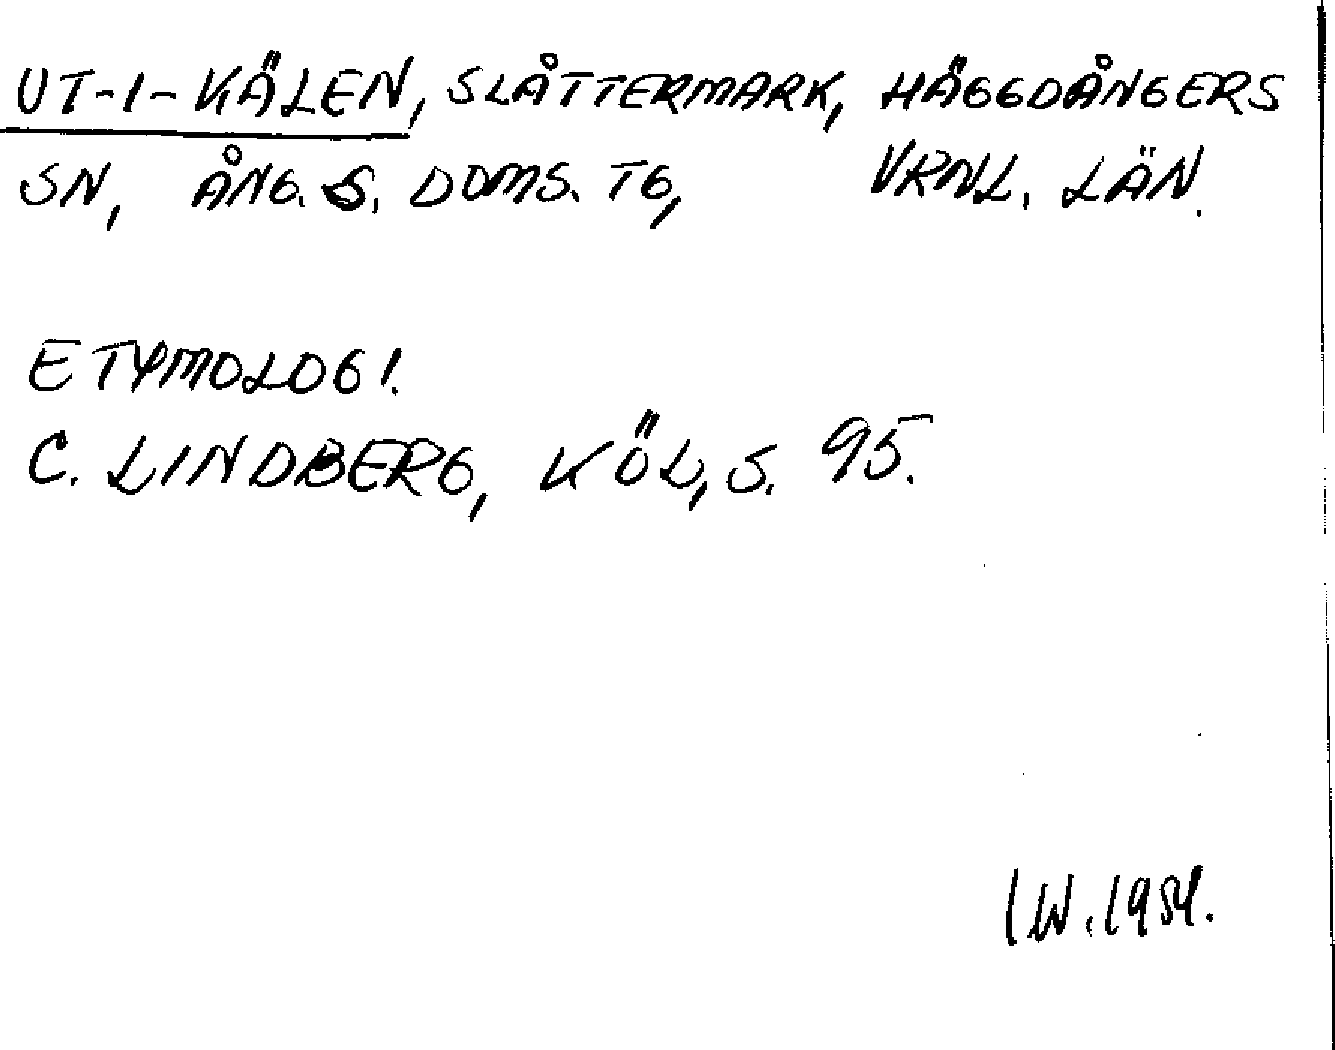 UT-I-KÄLEN, SLÅTTERMARK, HÄGGDÅNGERS
SN, ÅNG. S. DOMS. TG, VRNL. LÄN.
ETYMOLOGI.
C. LINDBERG, KÖL, S. 95.
IW. 1984.